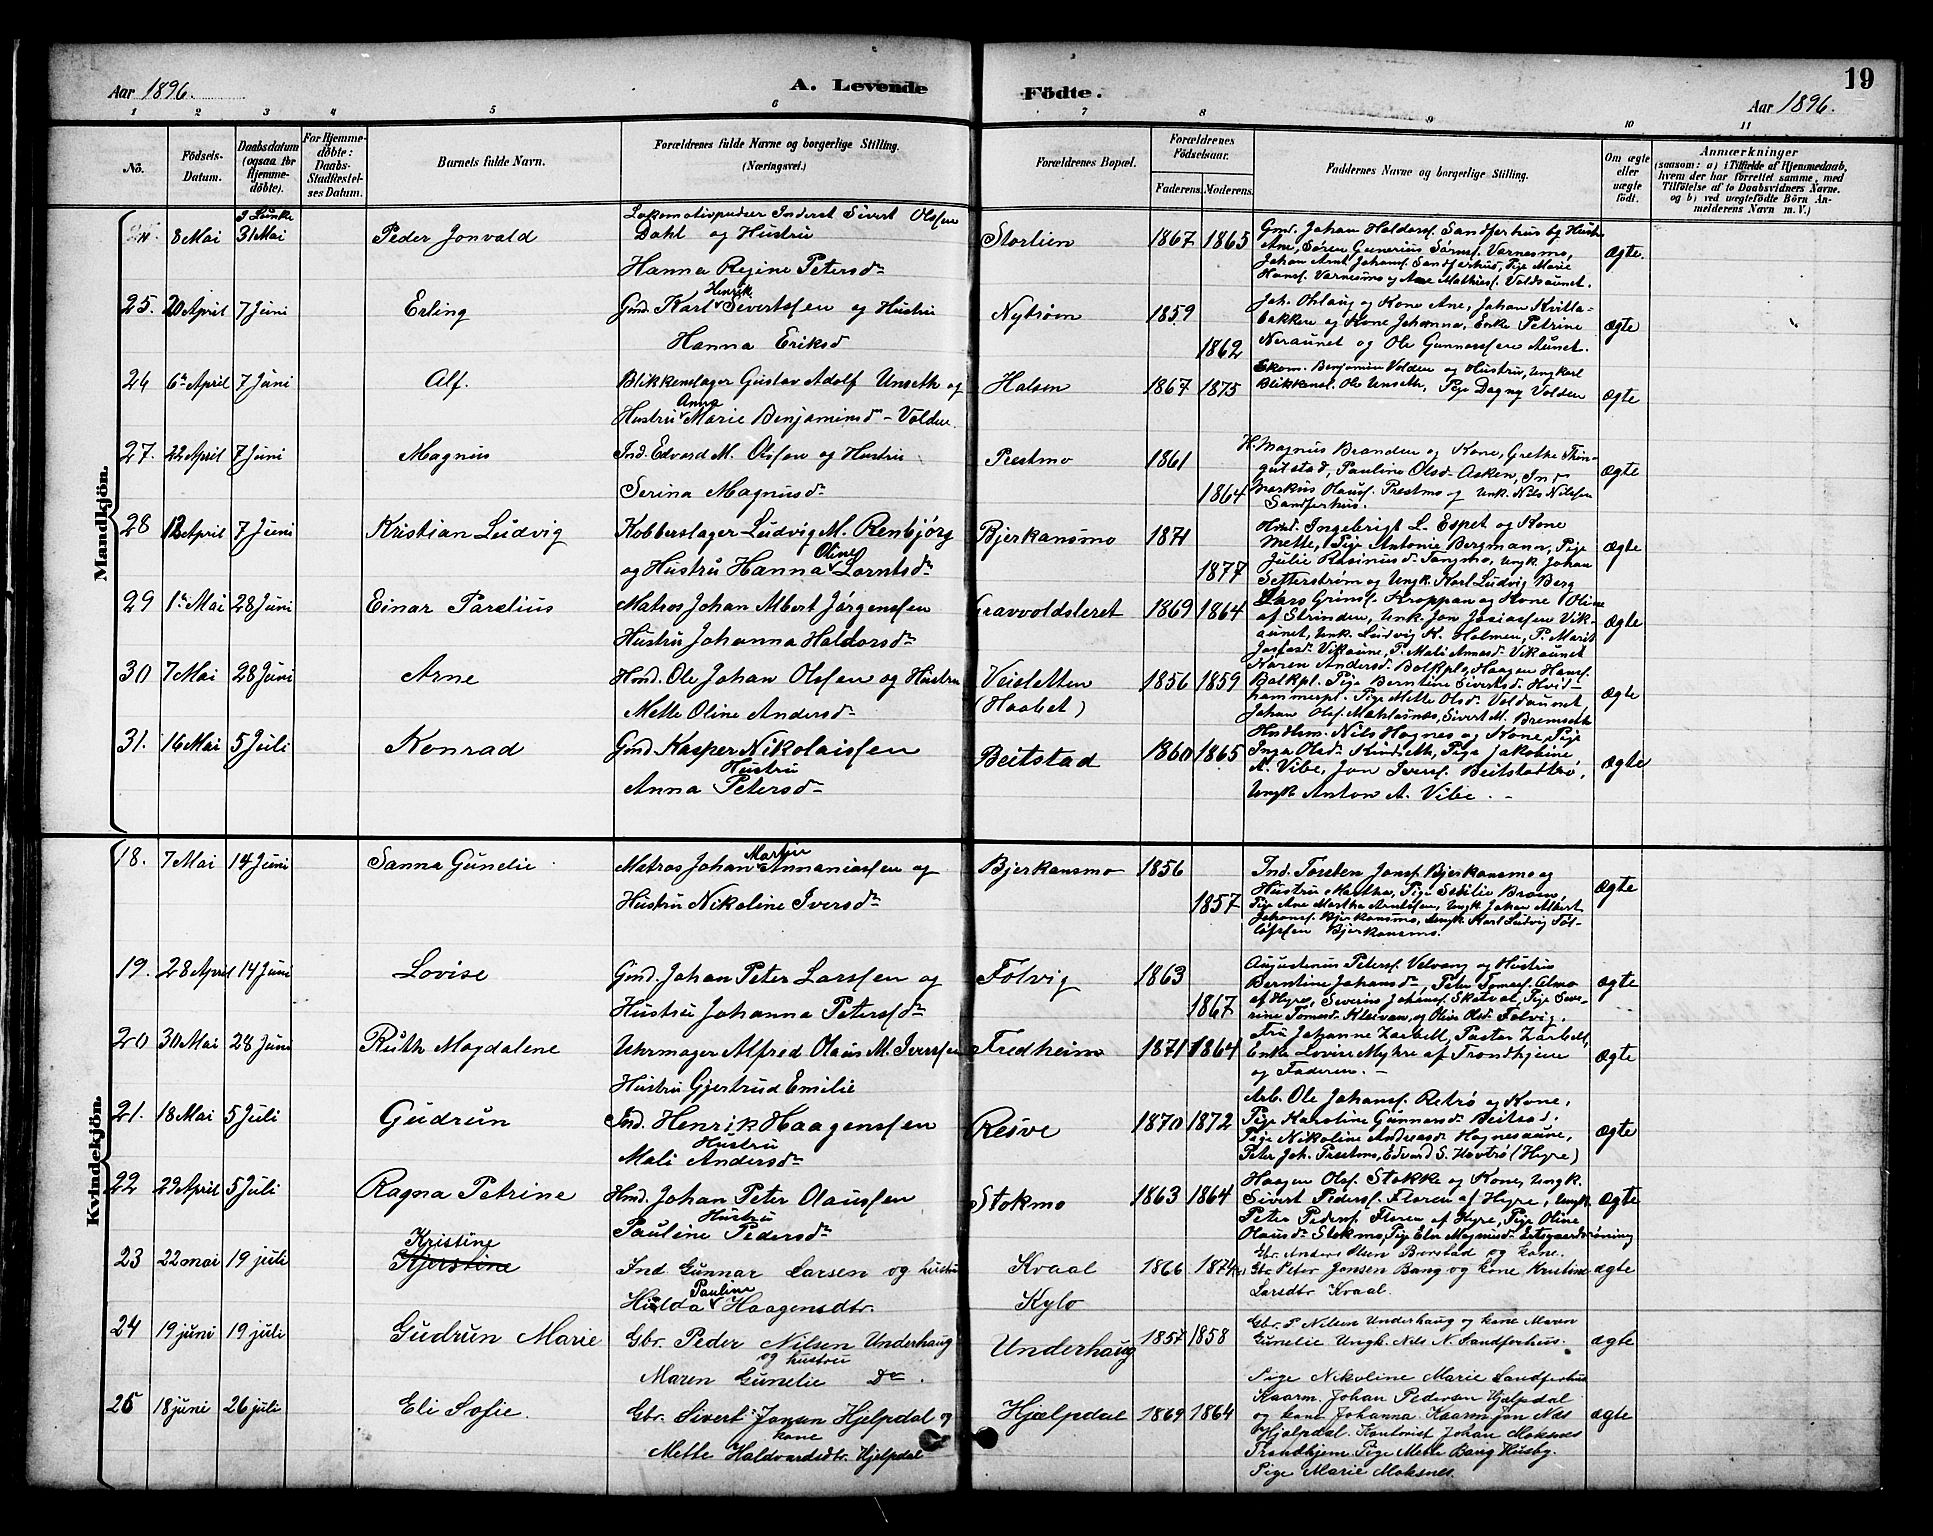 19
Aar 1896.
A. Levende
Födte.
Aar 1896.
1 2 3 4 5 6 7 8 9 10 11
No.
Födsels-Datum.
Daabsdatum (ogsaa for Hjemme-döbte).
For Hjemme-döbte: Daabs-Stadfæstelses Datum.
Barnets fulde Navn.
Forældrenes fulde Navne og borgerlige Stilling. (Næringsvei.)
Forældrenes Bopæl.
Forældrenes Födselsaar.
Faderens. Moderens.
Faddernes Navne og borgerlige Stilling.
Om ægte eller uægte födt.
Anmærkninger
(saasom: a) i Tilfælde af Hjemmedaab, hvem der har forrettet samme, med Tilföielse af to Daabsvidners Navne. og b) ved uægtefödte Börn Anmelderens Navn m. V.)
Mandkjön.
8 Mai 31 Mai Peder Jonvald
Lokomotivpudser Inderst Sivert Olssen
Dahl og Hustru
Hanna Regine Petersd.
Storlien 1867 1865
Gmd. Johan Haldorss. Sandferhus og Hustr.
Ane, Sören Gunerius Sörens. Varnesmo,
Johan Arnt Johans. Sandferhus, Pige Marie
Hansd. Varnesmo og Ane Mathiesd. Voldsaunet.
Ægte.
25. 20 April 7 Juni Erling
Gmd. Karl Henrik Sivertssen og Hustru
Hanna Eriksd
Nytrøen 1859 1862
Joh. Öhlaug og Kone Ane, Johan Kvitla-
bakken og Kone Johanna, Enke Petrine
Neraunet og Ole Gunnerssen Aunet.
Ægte
26 6 April 7 Juni Alf.
Blikkenslager Gustav Adolf Unseth og
Hustru Anna Marie Benjaminsd. Volden.
Halsen 1867 1875
Skom. Benjamin Volden og Hustru, Ungkarl
Blikkensl. Ole Unseth, Pige Dagny Volden
Ægte
27. 22 April 7 Juni Magnus
Ind. Edvard M. Olssen og Hustru
Serina Magnusd.
Prestmo 1861 1864
H. Magnus Branden og Kone, Grethe Thin-
gutstad, Pauline Olsd. Asken, Ind
Markus Olauss. Prestmo og Unk. Nils Nilssen
Sandferhus.
Ægte
28 12 April 7 Juni Kristian Ludvig
Kobberslager Ludvig M. Renbjörg
og Hustru Hanna Oline Lorntsd.
Bjerkansmo 1871 1877
Hmd. Ingebrigt L. Espet og Kone
Mette, Pige Antonie Bergmann, Pige
Julie Rasmusd. Tangmo, Ungk. Johan
Setterström og Ungk. Karl Ludvig Berg
Ægte
29 1 Mai 28 Juni Einar Parelius
Matros Johan Albert Jörgenssen
Hustru Johanna Haldorsd.
Gravvoldsleret 1869 1864
Lars Gröns. Kroppan og Kone Oline
af Strinden, Unk. Jon Josiassen Vik-
aunet, Unk. Ludvig K. Holmen, P. Marit
Josiasd. Vikaune, P. Mali Arnesd. Vikaunet
Ægte
30 7 Mai 28 Juni Arne
Hmd. Ole Johan Olssen og Hustru
Mette Oline Andersd.
Veisletten
(Haabet) 1856 1859
Karen Andersd. Balkpl., Haagen Hanss.
Balkpl. Pige Berntine Sivertsd. Hvid-
hammerpl. Pige Mette Olsd. Voldaunet
Johan Olss. Mæhlasnæs, Sivert M. Bremseth
Ægte
31. 16 Mai 5 Juli Konrad
Gmd. Kasper Nikolaissen
Hustru
Anna Petersd.
Beitstad 1860 1865
Hmdlsm. Nils Hognes og Kone, Pige
Inga Olsd. Mindseth, Pige Jakobine
A. Vibe, Jon Iverss. Beitstadtrø,
Ungk. Anton A. Vibe.
Ægte
Kvindekjön.
18. 7 Mai 14 Juni Sanna Gunelie
Matros Johan Martin Annaniassen og
Hustru Nikoline Iversd.
Bjerkansmo 1856 1857
Ind. Torsten Jonss. Bjerkansmo og
Hustru Martha, Pige Sesilie Broem,
Pige Ane Martha Arntssen, Ungk. Johan Albert
Johanss. Bjerkansmo, Ungk. Karl Ludvig Tol-
löfssen Bjerkansmo.
Ægte
19. 28 April 14 Juni Lovise
Gmd. Johan Peter Larssen og
Hustru Johanna Peterssd.
Folvig 1863 1867
Augustinus Peterss. Velvang og Hustru
Berntine Johansd., Peter Tomass. Almo
af Hegre, Severin Johans. Skatval, Pige Seve-
rine Tomasd. Kleivan, og Oline Olsd. Folvig.
Ægte
20 30 Mai 28 Juni Ruth Magdalene
Uhrmager Alfred Olaus M. Iverssen
Hustru Gjertrud Emilie
Fredheim 1871 1864
Fru Johanne Zarbell, Pastor Zarbell,
Enke Lovise Myhre af Trondhjem
og Faderen.
Ægte
21. 18 Mai 5 Juli Gudrun
Ind. Henrik Haagenssen
Hustru
Mali Andersd.
Resve 1870 1872
Arb. Ole Johanss. Retrö og Kone,
Pige Karoline Gunnarsd. Beitsad.
Pige Nikoline Andreasd. Hognesaune,
Peter Joh. Prestmo, Edvard S. Hovtrö (Hegre)
Ægte
22 29 April 5 Juli Ragna Petrine
Hmd. Johan Peter Olaussen
Hustru
Pauline Pedersd.
Stokmo 1863 1864
Haagen Olss. Stokke og Kone, Ungk.
Sivert Pederss. Floren af Hegre, Ungk.
Peter Pederss. Floren af Hegre, Pige Oline
Olausd. Stokmo, Pige Elen Magnusd.
Ægte
23 22 mai 19 juli Kristine
Kjerstine
Ind Gunnar Larsen og hustru
Hilda Pauline Haagensdtr.
Kvaal
Kylo 1866 1874
Gbr. Anders Olsen Borstad og kone.
Gbr Peter Jensen Bang og kone Kristine
Larsdtr Kvaal.
ægte
24 19 juni 19 juli Gudrun Marie
Gbr. Peder Nilsen Underhaug
og hustru
Maren Gunelie Do.
Underhaug 1857 1858
Gbr. P Nilsen Underhaug og kone Maren
Gunelie Ungk. Nils N. Sandferhus.
Pige Nikoline Marie Sandferhus
ægte
25 18 juni 26 juli Eli Sofie.
Gbr. Sivert Jonsen Hjelpdal og
kone
Mette Haldvardsdtr. Hjelpdal
Hjælpdal 1869 1864
Kaarm. Johan Pedersen Hjelpdal
og kone Johanna. Kaarm Jon Nils
Hjelpdal. Kontorist Johan Moksnes
Trondhjem. Pige Mette Bang Husby.
Pige Marie Moksnes.
ægte